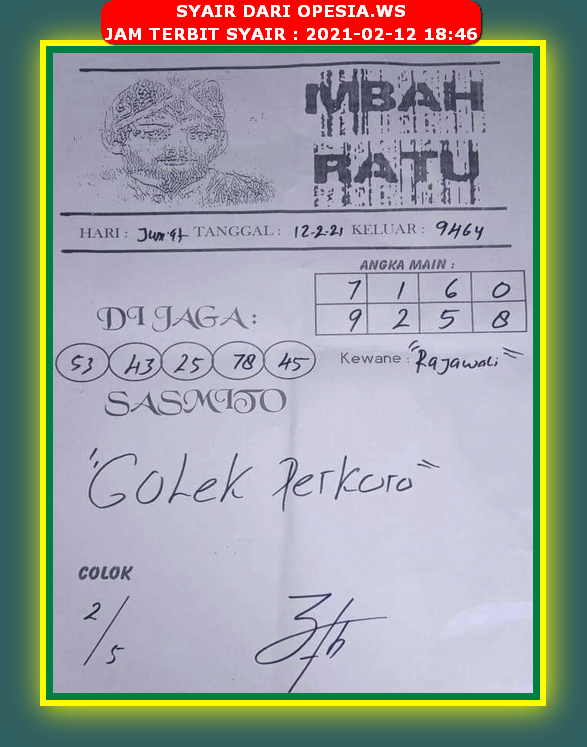 SYAIR DARI OPESIA.WS
JAM TERBIT SYAIR : 2021-02-12 18:46
MBAH
RATU
HARI : Jum'at TANGGAL : 12-2-21 KELUAR : 9464
ANGKA MAIN :
7 1 6 0
9 2 5 8
DI JAGA :
53 43 25 78 45
Kewane : "Rajawali"
SASMITO
"Golek Perkoro"
COLOK
2/5